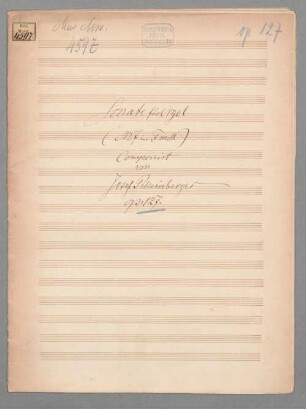 Mus. Mss.
4597
4597
op 127
Sonate für Orgel
(No 7 in F moll)
Componirt
von
Josef Rheinberger
op. 127.